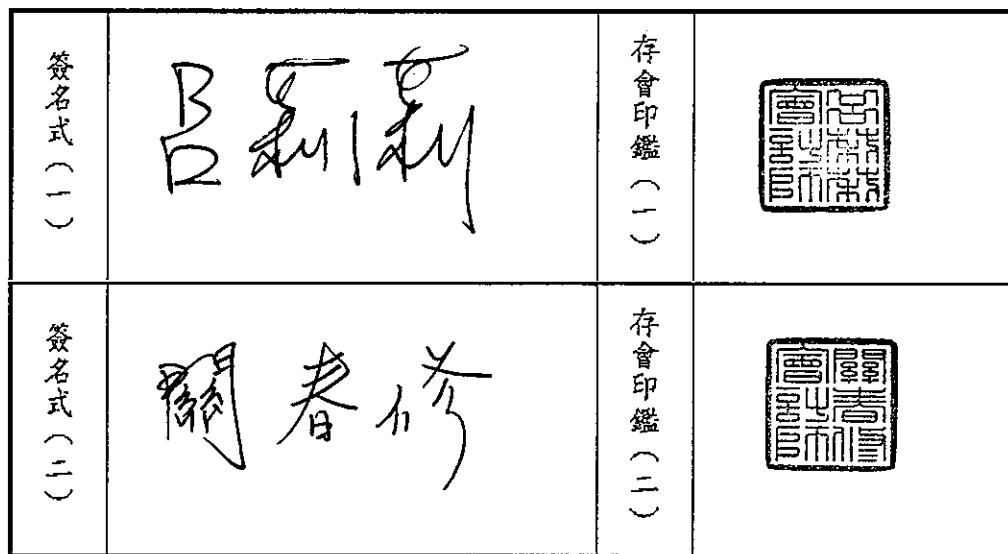 簽名式(一)
呂莉莉
存會印鑑(一)
呂莉莉
會計師印
簽名式(二)
關春修
存會印鑑(二)
關春修
會計師印